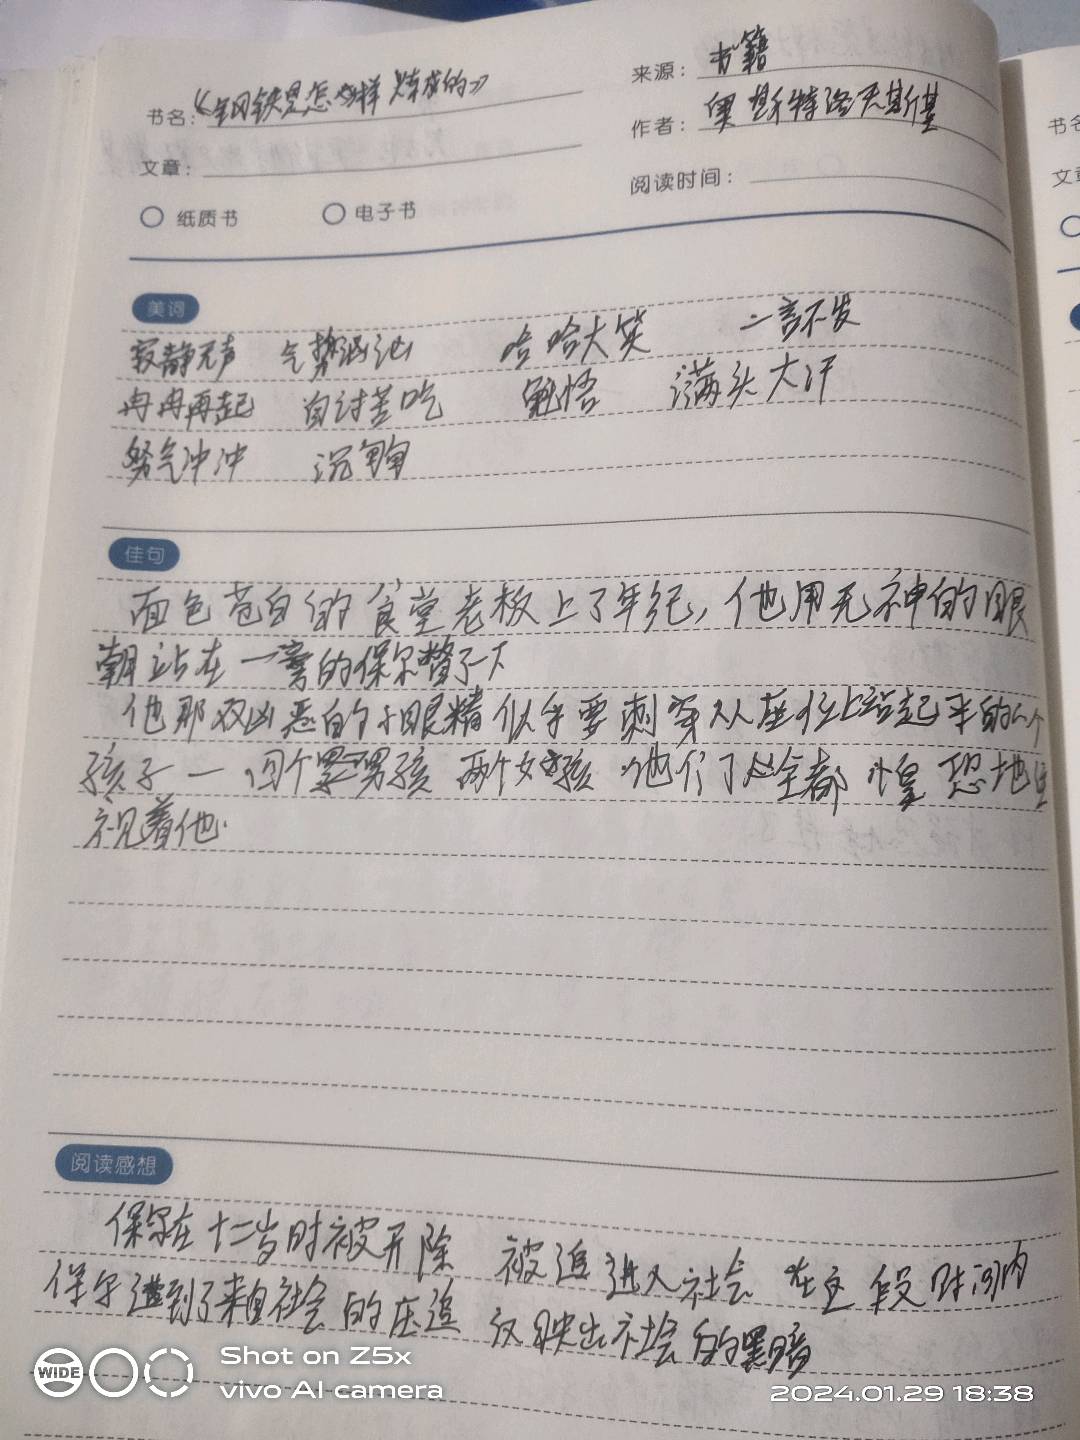 书名：《钢铁是怎样炼成的》
来源：书籍
作者：奥斯特洛夫斯基
文章：
阅读时间：
纸质书 电子书
美词
寂静无声 气势汹汹 哈哈大笑 一言不发
冉冉再起 自讨苦吃 魁悟 满头大汗
努气冲冲 沉甸甸
佳句
面色苍白的食堂老板上了年纪，他用无神的眼
朝站在一旁的保尔瞥了一下
他那双凶恶的小眼睛似乎要刺穿从座位上站起来的六个
孩子一四个男孩 两个女孩 他们全都惶恐地注
视着他.
阅读感想
保尔在十二岁时被开除 被迫进入社会 在这段时间内
保尔遭到了来自社会的压迫 反映出社会的黑暗
WIDE
Shot on Z5x
vivo AI camera
2024.01.29 18:38
书名
文章